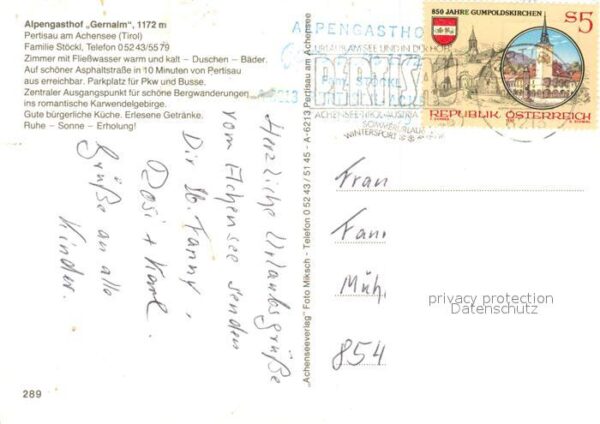 Alpengasthof „Gernalm", 1172 m
Pertisau am Achensee (Tirol)
Familie Stöckl, Telefon 0 52 43/55 79
Zimmer mit Fließwasser warm und kalt – Duschen – Bäder.
Auf schöner Asphaltstraße in 10 Minuten von Pertisau
aus erreichbar. Parkplatz für Pkw und Busse.
Zentraler Ausgangspunkt für schöne Bergwanderungen
ins romantische Karwendelgebirge.
Gute bürgerliche Küche. Erlesene Getränke.
Ruhe – Sonne – Erholung!
Herzliche Urlaubsgrüße
vom Achensee senden
Dir lb. Fanny,
Rosi + Karl.
Grüße an alle
Kinder.
289
"Achenseeverlag" Foto Miksch - Telefon 0 52 43 / 51 45 - A-6213 Pertisau am Achensee
ALPENGASTHOF
URLAUB AM SEE UND IN DER HÖHE
PERTISAU
Fam. STÖCKL
ACHENSEE-TIROL-AUSTRIA
SOMMERURLAUB
WINTERSPORT
850 JAHRE GUMPOLDSKIRCHEN
S5
REPUBLIK ÖSTERREICH
Frau
Fam.
Müh.
854
privacy protection
Datenschutz